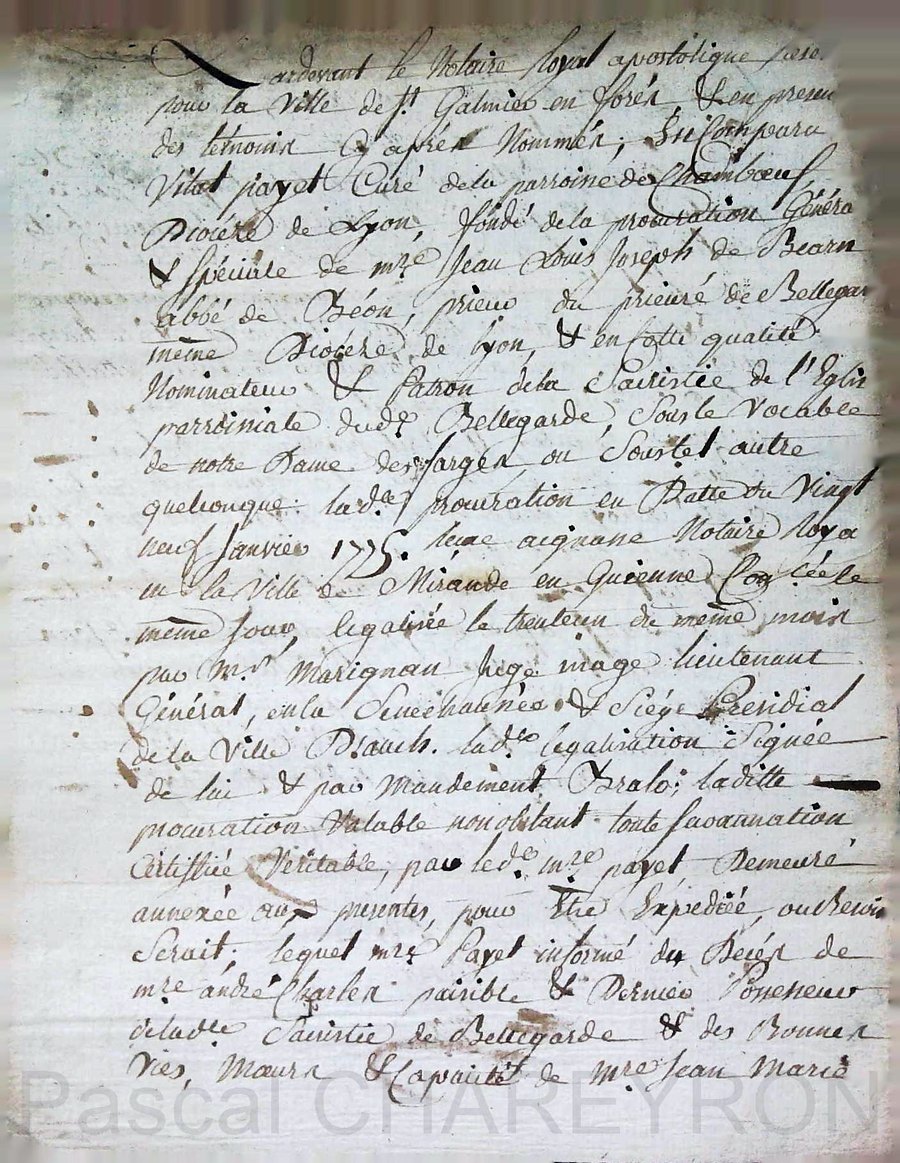 Pardevant le Notaire Royal apostolique
pour la Ville de St. Galmier en forés, & en presen
des temoins Cy après Nommés; Est Comparu
Vital payet Curé de la parroisse de Chambœuf
Diocése de Lyon, fondé de la procuration Généra
& spéciale de mre Jean Louis Joseph de Bearn
abbé de Béon, prieur du prieuré de Bellegar
même Diocése de Lyon, & en cette qualité
Nominateur & Patron de la Sacristie de l'Eglis
parroissiale dudt Bellegarde, Sous le Vocable
de notre Dame des farges, ou Soustel autre
quelconque: lade procuration en Datte du Vingt
neuf Janvier 1775. Notaire Roya
en la Ville de Mirande en Guienne le
même Jour, legalisée le trenteun du même mois
par Mr. Marignan Juge mage lieutenant
Général, en la Sénéchaussée & Siége Presidial
de la Ville D'auch. lade legalisation Signée
de lui & par Mandement Bralo; laditte
procuration Valable nonobstant toute Surannation
Certiffiée Véritable, par ledt mre payet Demeuré
annexée aux presentes, pour Etre Expediée, ou besoin
Serait; lequel mre Payet informé du Decés de
mre andré Charles paisible & Dernier Possesseur
de lade Sacristie de Bellegarde & des Bonnes
Vies, Mœurs & Capacité de mre Jean Marie
Pascal CHAREYRON